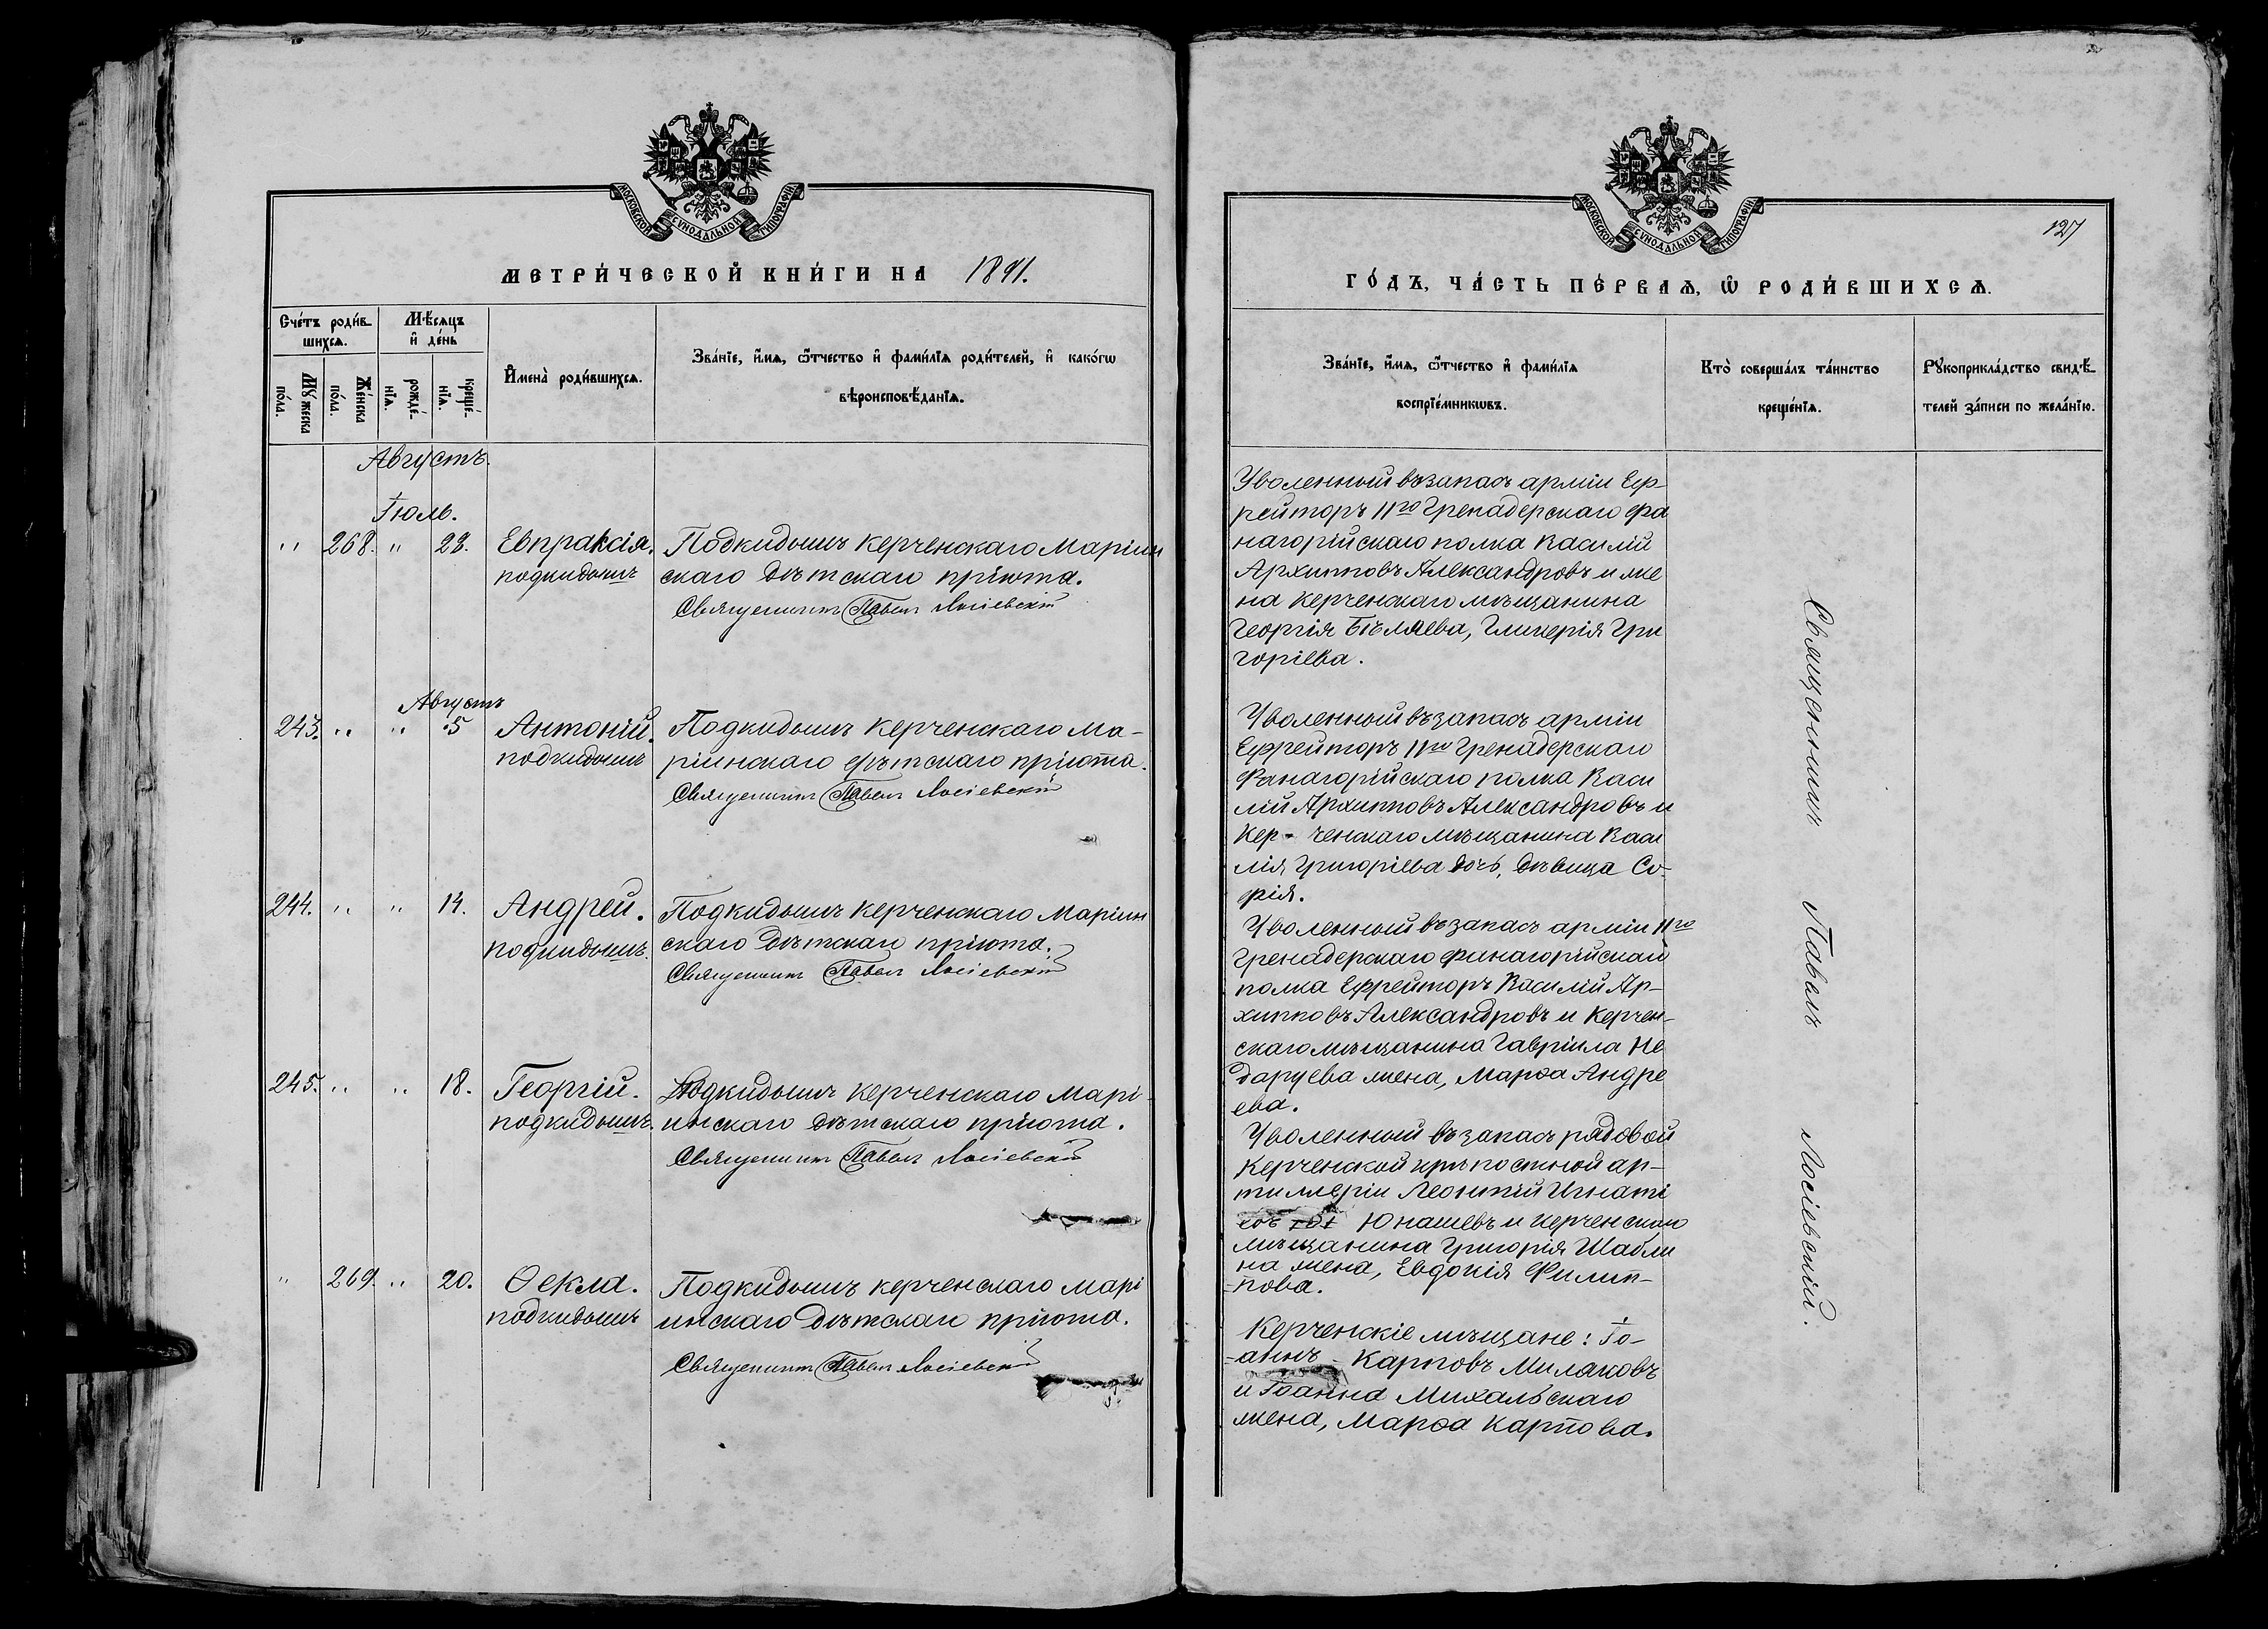 МОСКОВСКОЙ СѴНОДАЛЬНОЙ ТИПОГРАФІИ
МЕТРИ́ЧЕСКОЙ КНИ́ГИ НА 1891.
Сче́тъ роди́вшихсѧ.
Мꙋ́жеска по́ла.
Же́нска по́ла.
Мѣ́сѧцъ и҆ де́нь
рожде́нїѧ.
креще́нїѧ.
И҆мена̀ роди́вшихсѧ.
Зва́нїе, и҆́мѧ, ѻ҆́тчество и҆ фами́лїѧ роди́телей, и҆ како́гѡ
вѣроисповѣ́данїѧ.
Августъ.
Іюль.
" 268. " 23. Евпраксія. Подкидышъ Керченскаго Маріин
подкидышъ скаго Дѣтскаго пріюта.
Священникъ Павелъ Лосіевскій
Августъ
243. " " 5 Антоній. Подкидышъ Керченскаго Ма-
подкидышъ ріинскаго дѣтскаго пріюта.
Священникъ Павелъ Лосіевскій
244. " " 14. Андрей. Подкидышъ Керченскаго Маріин
подкидышъ. скаго Дѣтскаго пріюта.
Священникъ Павелъ Лосіевскій
245. " " 18. Георгій. Подкидышъ Керченскаго Марі-
подкидышъ. инскаго дѣтскаго пріюта.
Священникъ Павелъ Лосіевскій
" 269. " 20. Ѳекла. Подкидышъ Керченскаго Марі
подкидышъ инскаго Дѣтскаго пріюта.
Священникъ Павелъ Лосіевскій
МОСКОВСКОЙ СѴНОДАЛЬНОЙ ТИПОГРАФІИ
127
ГО́ДЪ, ЧА́СТЬ ПЕ́РВАѦ, Ѡ҆ РОДИ́ВШИХСѦ.
Зва́нїе, и҆́мѧ, ѻ҆́тчество и҆ фами́лїѧ
воспрїе́мникѡвъ.
Кто̀ соверша́лъ та́инство
креще́нїѧ.
Рꙋкоприкла́дство свидѣ́-
телей за́писи по жела́нїю.
Уволенный въ запасъ арміи Еф-
рейторъ 11го Гренадерскаго Фа
нагорійскаго полка Василій
Архипповъ Александровъ и же
на Керченскаго мѣщанина
Георгія Бѣляева, Гликерія Гри
горіева.
Уволенный въ запасъ арміи
Ефрейторъ 11го Гренадерскаго
Фанагорійскаго полка Васи
лій Архипповъ Александровъ и
Кер- ченскаго мѣщанина Васи
лія Григоріева дочь, дѣвица Со-
фія.
Уволенный въ запасъ арміи 11го
Гренадерскаго Фанагорійскаго
полка Ефрейторъ Василій Ар-
хипповъ Александровъ и Керчен-
скаго мѣщанина Гавріила Не
даруева жена, Марѳа Андре
ева.
Уволенный въ запасъ рядовой
Керченской крѣпостной ар-
тиллеріи Леонтій Игнаті
евъ Юнашевъ и Керченскаго
мѣщанина Григорія Шабли
на жена, Евдокія Филип-
-пова.
Керченскіе мѣщане: Іо-
-аннъ Карповъ Милаковъ
и Іоанна Михальскаго
жена, Марѳа Карпова.
Священникъ Павелъ Лосіевскій.